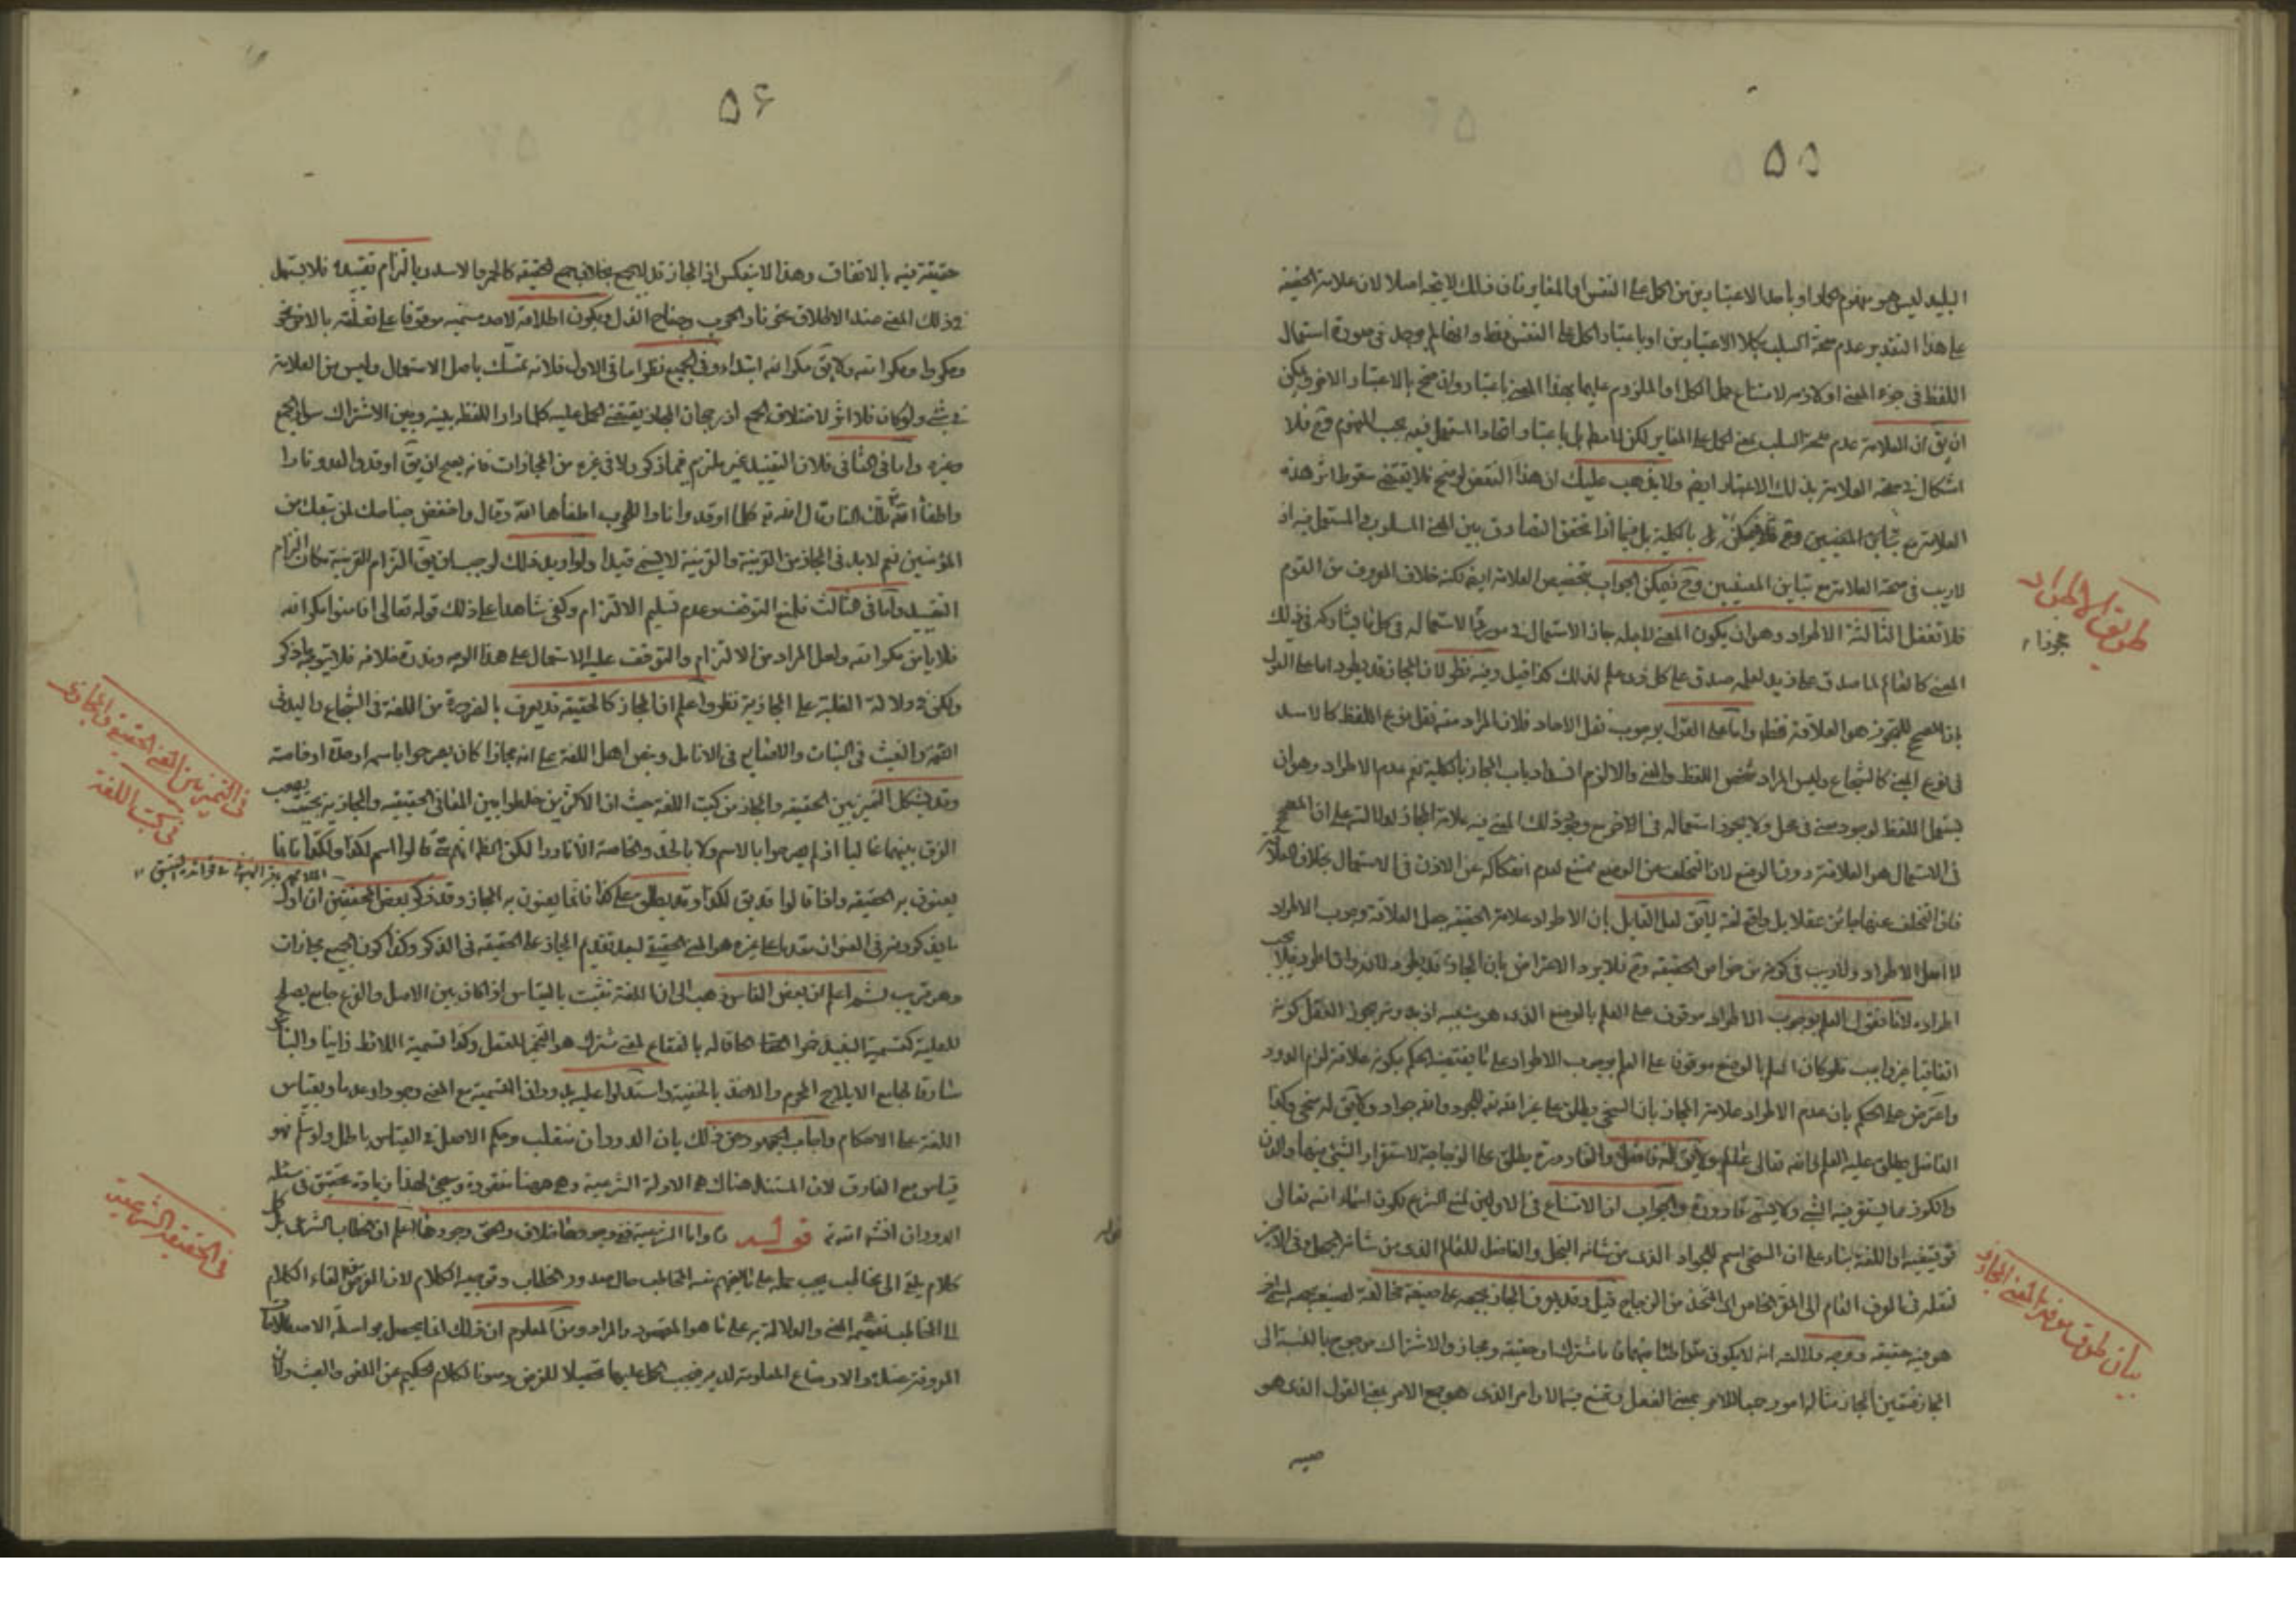 ۵۵
البليد ليس هو مفهوم الحمار او باحد الاعتبارين من الحمل على النفس او المغاير فان ذلك لا يتجه اصلا لان علامة الحقيقة
على هذا التقدير عدم صحة السلب بكلا الاعتبارين او باعتبار الحمل على النفس فقط وايضا لم يوجد في صورة استعمال
اللفظ في جزء المعنى او لازمه لامتناع حمل الكل او الملزوم عليهما بهذا المعنى باعتبار وان صح بالاعتبار الاخر ويمكن
ان يق ان العلامة عدم صحة السلب بمعنى الحمل على المغاير لكن لا مط بل باعتبار اتحاد المستعمل فيه بحسب المفهوم وح فلا
اشكال في صحة العلامة بذلك الاعتبار ايضا ولا يذهب عليك ان هذا النقض لو صح فلا يقتضى سقوط اثر هذه
العلامة بالكلية بل فيما اذا تحقق التصادق بين المعنى المسلوب والمستعمل فيه اذ
لا ريب في صحة العلامة مع تباين المعنيين وح فيمكن الجواب بتخصيص العلامة ايضا لكنه خلاف المعروف من القوم
فلا تغفل الثالثة الاطراد وهو ان يكون المعنى لاجله جاز الاستعمال في مورد الاستعمال في كل ما يشاركه في ذلك
المعنى كالعالم لما صدق على زيد لعلمه صدق على كل ذي علم لذلك كذا قيل وفيه نظر لان المجاز قد يطرد اما على القول
بان المصحح للتجوز هو العلاقة فقط واما على القول بوجوب نقل الاحاد فلان المراد منه نقل نوع اللفظ كالاسد
في نوع المعنى كالشجاع وليس المراد شخص اللفظ والمعنى والا لزم انسداد باب المجاز بالكلية نعم عدم الاطراد وهو ان
يستعمل اللفظ لوجود معنى في محل ولا يجوز استعماله في الاخر مع وجود ذلك المعنى فيه علامة المجاز لدلالته على ان المصحح
في الاستعمال هو العلاقة دون الوضع لان التخلف عن الوضع ممتنع لعدم انفكاكه عن الاذن في الاستعمال بخلاف العلاقة
فان التخلف عنها جائز عقلا بل واقع لغة لا يق لعل القايل بان الاطراد علامة الحقيقة جعل العلاقة وجوب الاطراد
لا اصل الاطراد ولا ريب في كونه من خواص الحقيقة وح فلا يرد الاعتراض بان المجاز قد يطرد لانه وان اطرد فلا يجب
اطراده لانا نقول العلم بوجوب الاطراد موقوف على العلم بالوضع الذي هو سببه اذ بدونه يجوز العقل كونه
اتفاقيا غير واجب فلو كان العلم بالوضع موقوفا على العلم بوجوب الاطراد على ما يقتضيه الحكم بكونه علامة لزم الدور
واعترض على الحكم بان عدم الاطراد علامة المجاز بان السخي يطلق على غير الله تعالى للجود والله جواد ولا يق له سخي وكذا
الفاضل يطلق عليه العلم والله تعالى عالم ولا يق له فاضل والقارورة يطلق على الزجاجة لاستقرار الشيء فيها والدن
والكوز مما يستقر فيه الشيء ولا يسمى قارورة والجواب ان الامتناع في الاولين لمنع الشرع لكون اسماء الله تعالى
توقيفية او اللغة بناء على ان السخي اسم للجواد الذي من شانه البخل والفاضل للعالم الذي من شانه الجهل وفي الاخير
لنقله في العرف العام الى المقر الخاص اي المتخذ من الزجاج قيل وقد يعرف المجاز بجمعه على صيغة مخالفة لصيغة جمعه لمسمى اخر
هو فيه حقيقة وجه دلالته انه لا يكون متواطئا فيهما فاما مشترك او حقيقة ومجاز والاشتراك مرجوح بالنسبة الى
المجاز فتعين المجاز مثاله امور جمعا للامر بمعنى الفعل ويمتنع فيه الاوامر الذي هو جمع الامر بمعنى القول الذي هو
طريقية الاطراد
بيان طرق معرفة المعنى المجازي
۵۶
حقيقة فيه بالاتفاق وهذا لا ينعكس اذ المجاز قد لا يجمع بخلاف جمع الحقيقة كالحمر والاسد وبالتزام تقييده فلا يستعمل
في ذلك المعنى عند الاطلاق نحو نار الحرب وجناح الذل وبكون اطلاقه لاحد مسمييه موقوفا على تعلقه بالاخر نحو
ومكروا ومكر الله ولا يق مكر الله ابتداء وفي الجميع نظر اما في الاول فلانه تمسك باصل الاستعمال وليس من العلامة
في شيء ولو كان فلا اثر لاختلاف الجمع اذ رجحان المجاز يقتضي الحمل عليه كلما دار اللفظ بينه وبين الاشتراك سواء جمع
وغيره واما في الثاني فلان التقييد غير ملتزم فيما ذكر ولا في غيره من المجازات فانه يصح ان يق اوقد والعدو نارا
واطفأ الله تلك النار قال الله تع كلما اوقدوا نارا للحرب اطفأها الله وقال واخفض جناحك لمن تبعك من
المؤمنين نعم لابد في المجاز من القرينة والقرينة لا يسمى قيدا ولو اريد ذلك لوجب ان يق التزام القرينة مكان التزام
التقييد واما في الثالث فلمنع التوقف وعدم تسليم الالتزام وكفى شاهدا على ذلك قوله تعالى افامنوا مكر الله
فلا يامن مكر الله ولعل المراد من الالتزام والتوقف غلبة الاستعمال على هذا الوجه وندرة خلافه فلا يتوجه ما ذكر
ولكن في دلالة الغلبة على المجازية نظر واعلم ان المجاز كالحقيقة قد يعرف بالضرورة من اللغة في الشجاع واليد في
النعمة والغيث في النبات والاصابع في الانامل وبنص اهل اللغة على انه مجاز اذا كان بصرحوا باسمه او حده او خاصته
وقد يشكل التميز بين الحقيقة والمجاز من كتب اللغة حيث ان الاكثرين خلطوا بين المعاني الحقيقية والمجازية بحيث يصعب
الفرق بينهما غالبا اذ لم يصرحوا بالاسم ولا بالحد والخاصة الا نادرا لكن الظ انهم متى قالوا اسم لكذا او لكذا فانما
يعنون به الحقيقة واذا قالوا قد يق لكذا او قد يطلق على كذا فانما يعنون به المجاز وقد ذكر بعض المحققين ان اول
ما يذكرونه في العنوان مقدما على غيره هو المعنى الحقيقي لبعد تقديم المجاز على الحقيقة في الذكر وكذا كون الجميع مجازات
وهو قريب ثم اعلم ان بعض الناس ذهب الى ان اللغة تثبت بالقياس اذا كان بين الاصل والفرع جامع يصلح
للعلية كتسمية النبيذ خمرا الحاقا له بالفقاع لمعنى مشترك هو التخمير للعقل وكذا تسمية اللائط زانيا والنباش
سارقا لجامع الايلاج المحرم والاخذ بالخفية واستدلوا عليه بدوران التسمية مع المعنى وجودا وعدما وبقياس
اللغة على الاحكام واجاب الجمهور عن ذلك بان الدوران منقلب وحكم الاصل في القياس باطل ولو سلم فهو
قياس مع الفارق لان المستند هناك هو الادلة الشرعية وهي ههنا مفقودة وسيجئ لهذا زيادة تحقيق في مسئلة
الدوران انشاء الله تع قوله واما الشرعية ففي وجودها خلاف والحق وجودها اعلم ان خطاب الشرع بل كل
كلام يلقى الى مخاطب يجب حمله على ما يفهم منه المخاطب حال صدور الخطاب وتوجيه الكلام لان الغرض من القاء الكلام
الى المخاطب تفهيم المعنى والدلالة به على ما هو المقصود والمراد ومن المعلوم ان ذلك انما يحصل بواسطة الاصطلاحات
المعروفة عنده والاوضاع المعلومة لديه فيجب الحمل عليها تحصيلا للغرض وصونا لكلام الحكيم عن اللغو والعبث ولان
في التميز بين المعنى الحقيقي والمجازي
في كتب اللغة
في الحقيقة الشرعية